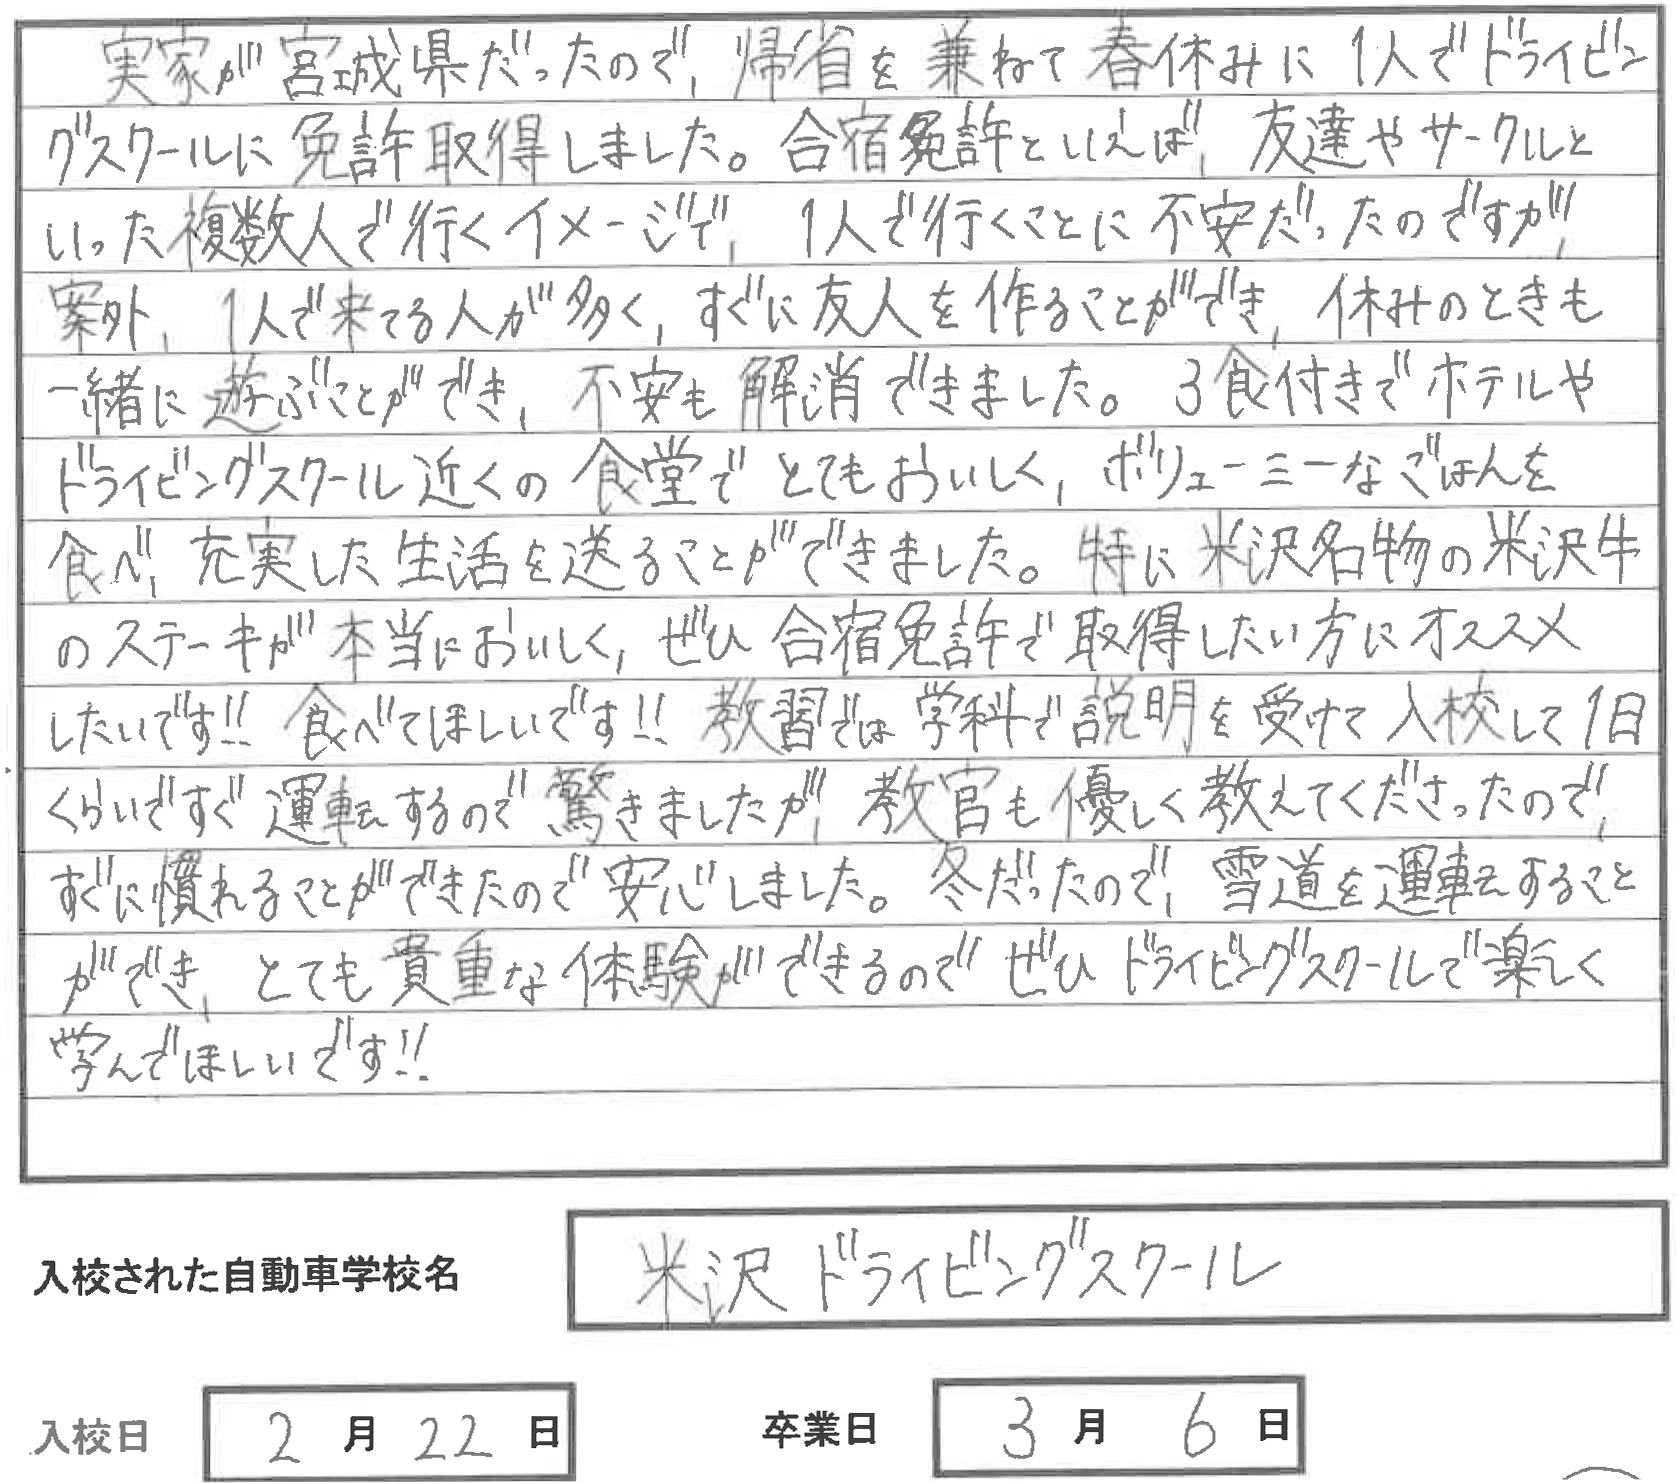 実家が宮城県だったので、帰省を兼ねて春休みに1人でドライビン
グスクールに免許取得しました。合宿免許といえば、友達やサークルと
いった複数人で行くイメージで、1人で行くことに不安だったのですが、
案外、1人で来てる人が多く、すぐに友人を作ることができ、休みのときも
一緒に遊ぶことができ、不安も解消できました。3食付きでホテルや
ドライビングスクール近くの食堂でとてもおいしく、ボリューミーなごはんを
食べ、充実した生活を送ることができました。特に米沢名物の米沢牛
のステーキが本当においしく、ぜひ合宿免許で取得したい方にオススメ
したいです!! 食べてほしいです!! 教習では学科で説明を受けて入校して1日
くらいですぐ運転するので驚きましたが、教官も優しく教えてくださったので、
すぐに慣れることができたので安心しました。冬だったので、雪道を運転すること
ができ、とても貴重な体験ができるのでぜひドライビングスクールで楽しく
学んでほしいです!!
入校された自動車学校名 米沢ドライビングスクール
入校日 2月22日 卒業日 3月6日